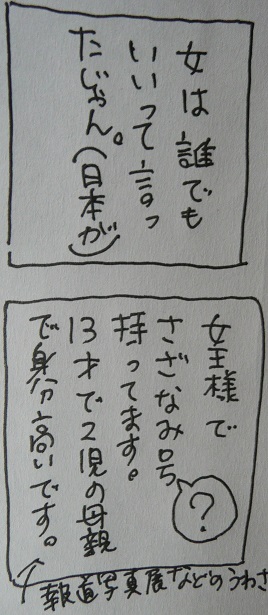 女は誰でも
いいって言っ
たじゃん。(日本が)
女王様で
さざなみ号
持ってます。
13才で2児の母親
で身分高いです。
?
↑報道写真展などのうわさ